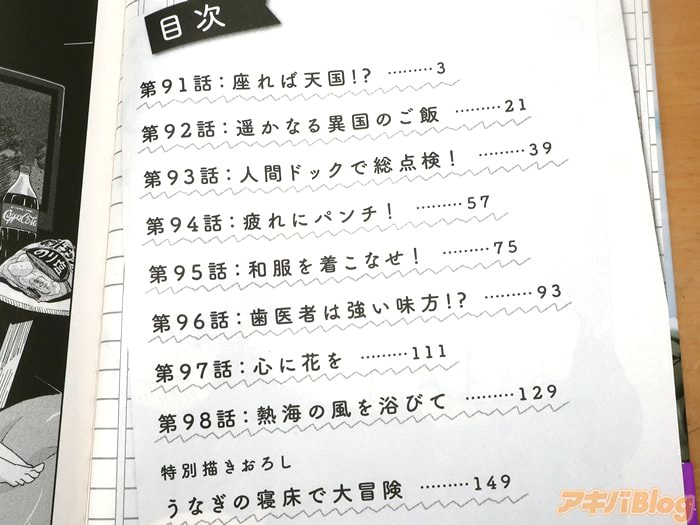 目次
第91話：座れば天国!? ………3
第92話：遥かなる異国のご飯 ………21
第93話：人間ドックで総点検！ ………39
第94話：疲れにパンチ！ ………57
第95話：和服を着こなせ！ ………75
第96話：歯医者は強い味方!? ………93
第97話：心に花を ………111
第98話：熱海の風を浴びて ………129
特別描きおろし
うなぎの寝床で大冒険 ………149
のり塩
アキバBlog